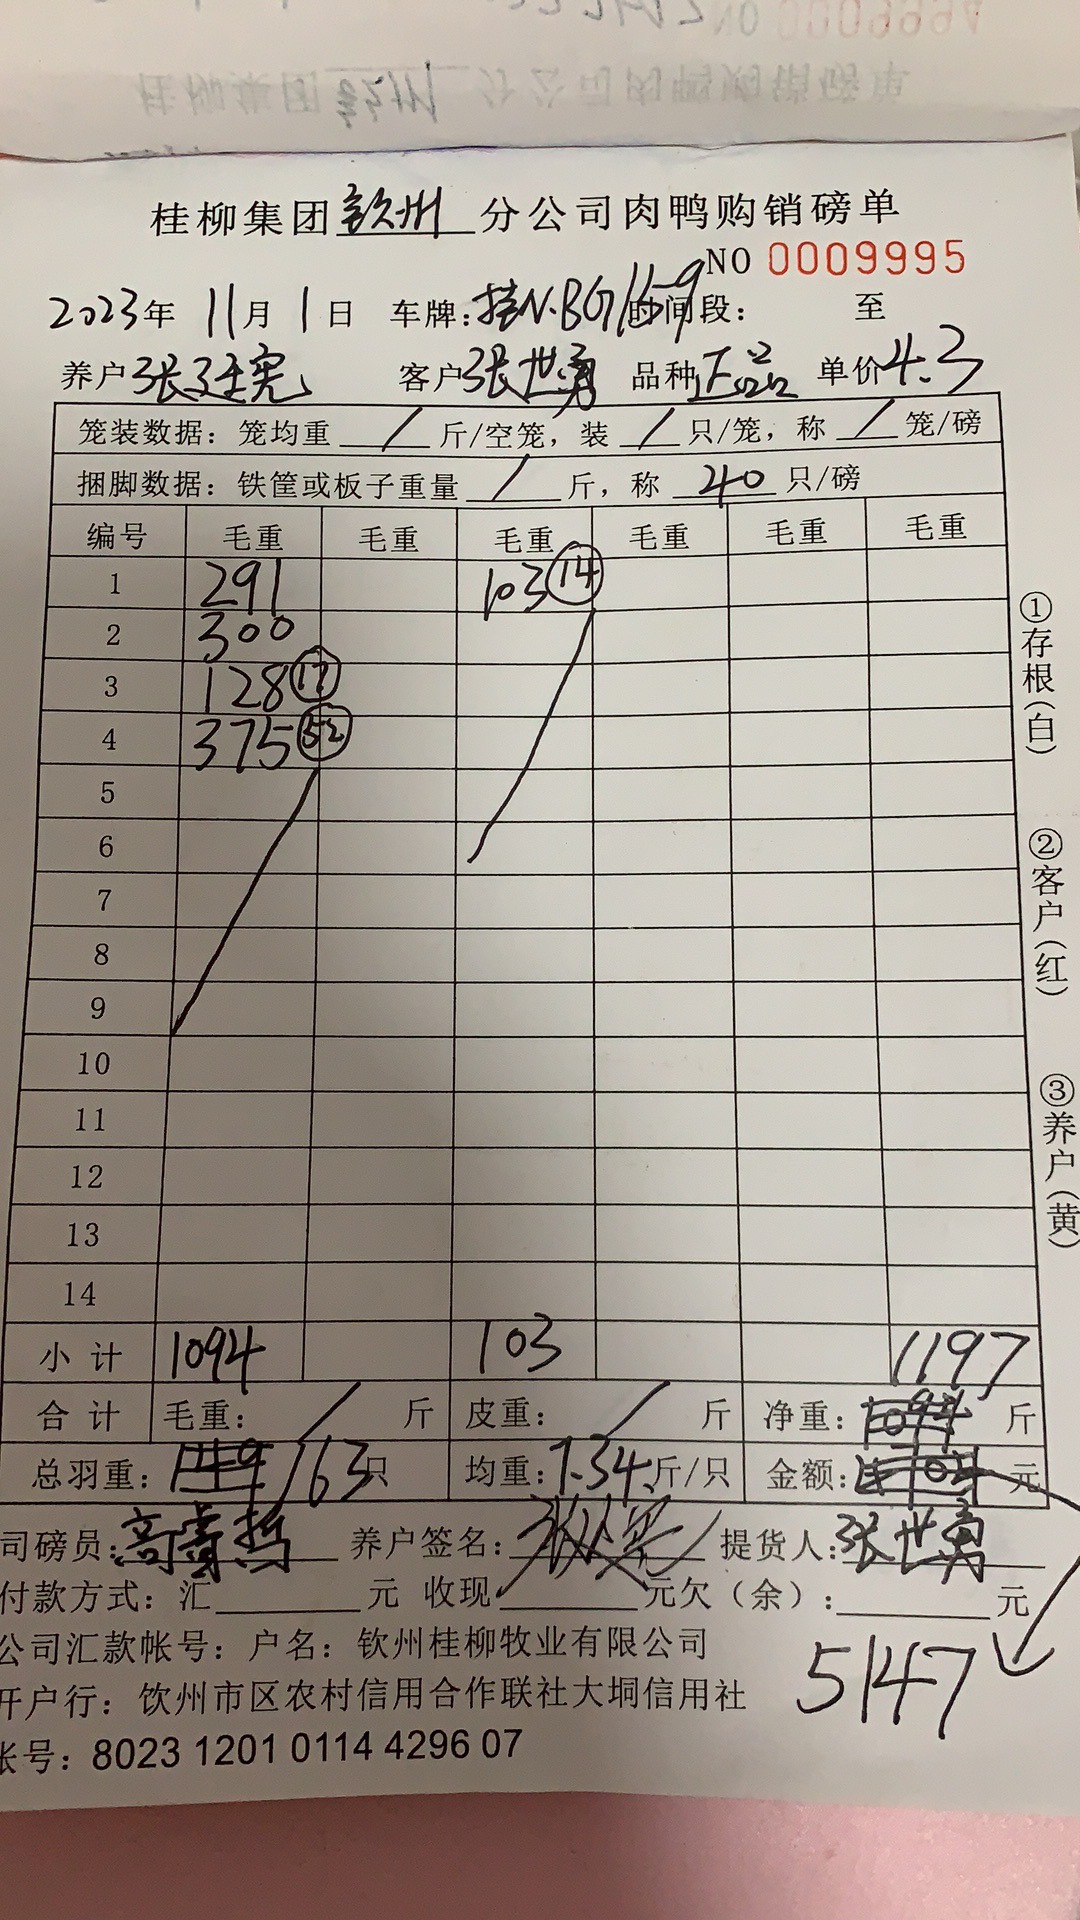 桂柳集团钦州分公司肉鸭购销磅单
NO 0009995
2023年 11月 1日 车牌: 时间段: 至
养户 张廷宪 客户 张世勇 品种 正品 单价 4.3
笼装数据: 笼均重 / 斤/空笼, 装 / 只/笼, 称 / 笼/磅
捆脚数据: 铁筐或板子重量 / 斤, 称 40 只/磅
编号 毛重 毛重 毛重 毛重 毛重 毛重
1 291 103 14
2 300
3 128 17
4 375 52
5
6
7
8
9
10
11
12
13
14
小计 1094 103 1197
合计 毛重: / 斤 皮重: / 斤 净重: 斤
总羽重: 163只 均重: 7.34斤/只 金额: 元
司磅员: 养户签名: 提货人: 张世勇
付款方式: 汇 元 收现 元欠(余): 元
5147
公司汇款帐号: 户名: 钦州桂柳牧业有限公司
开户行: 钦州市区农村信用合作联社大垌信用社
帐号: 8023 1201 0114 4296 07
①存根(白)
②客户(红)
③养户(黄)